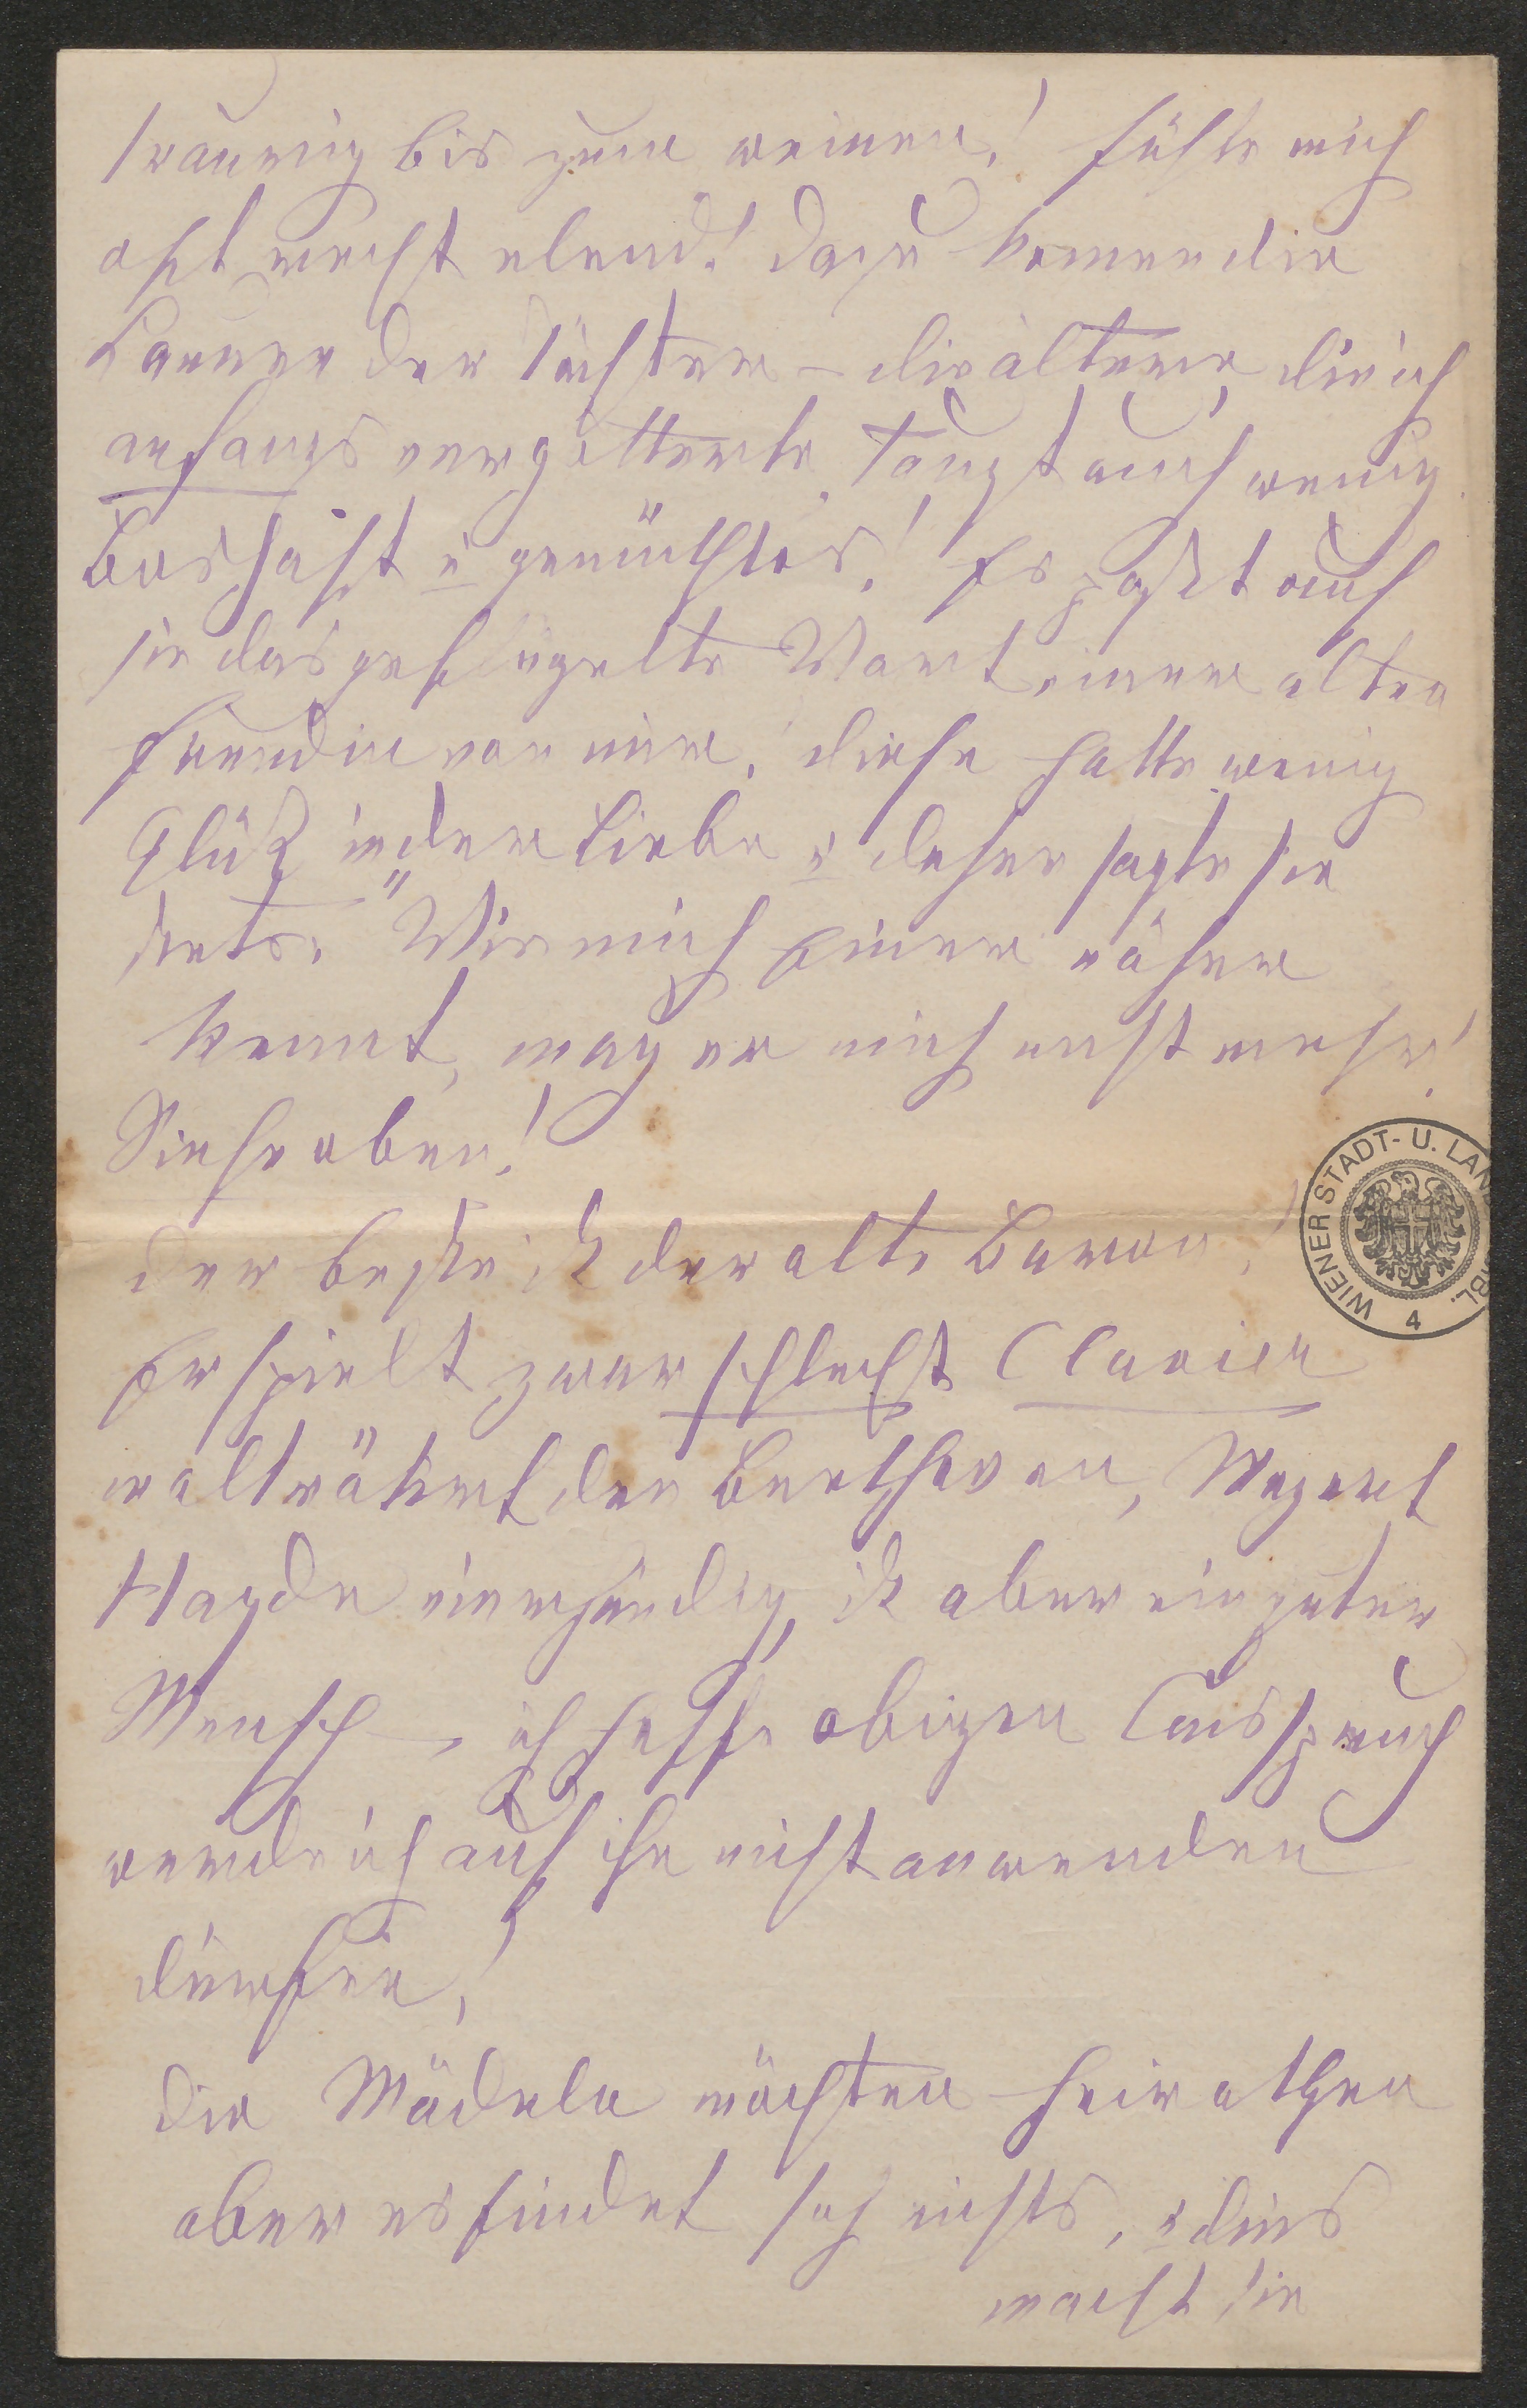 traurig bis zum weinen! fühle mich
oft recht elend! Dazu komen die
Launen der Töchter – die ältere, die ich
anfangs vergötterte, taugt auch wenig
boshaft u gemüthlos! Es paßt auf
sie das geflügelte Wort einer alten
Freundin von mir, diese hatte wenig
Glück in der Liebe u daher sagte sie
stets: "Wie mich Einer näher
kennt, mag er mich nicht mehr!
Siehe oben!
Der beste ist der alte Baron!
Er spielt zwar schlecht Clavier
malträtirt den Beethoven, Mozart
Haydn vierhändig, ist aber ein guter
Mensch, ich hoffe obigen Ausspruch
werde ich auf ihn nicht anwenden
dürfen!
Die Mädeln möchten heirathen
aber es findet sich nichts, u dies
macht sie
WIENER STADT- U. LAN
BL.
4